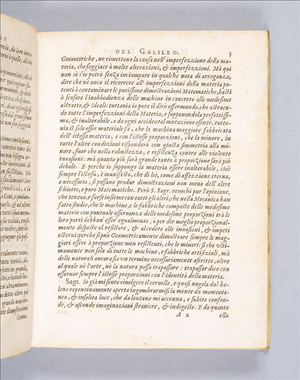 DEL GALILEO. 3
Geometriche, ne rimettiamo la causa nell'imperfezzione della ma-
teria, che soggiace à molte alterazioni, & imperfezzioni. Mà quì
non sò s'io potrò senza inciampare in qualche nota di arroganza,
dire che ne anco il ricorrere all'imperfezzioni della materia po-
tenti à contaminare le purissime dimostrazioni Matematiche, basti
à scusare l'inobbedienza delle machine in concreto alle medesime
astratte, & ideali: tuttavia io pure il dirò affermando, che astraen-
do tutte l'imperfezzioni della Materia, e supponendola perfettissi-
ma, & inalterabile, e da ogni accidental mutazione esente, tutta-
via il solo esser materiale fà, che la machina maggiore fabbricata
dell'istessa materia, e con l'istesse proporzioni, che la minore, in
tutte l'altre condizioni risponderà con giusta simmetria alla mi-
nore, fuor che nella robustezza, e resistenza contro alle violente
invasioni: mà quanto più sarà grande tanto à proporzione sarà più
debole. E perche io suppongo la materia essere inalterabile, cioè
sempre l'istessa, è manifesto, che di lei, come di affezzione eterna,
e necessaria, si possano produr dimostrazioni non meno dell'altre
schiette, e pure Matematiche. Però S. Sagr. revochi pur l'opinione,
che teneva, e forse insieme con tutti gl'altri, che nella Mecanica han
fatto studio, che le machine, e le fabbriche composte delle medesime
materie con puntuale osservanza delle medesime proporzioni trà le
loro parti debban esser egualmente, ò per dir meglio proporzional-
mente disposte al resistere, & al cedere alle invasioni, & impeti
esterni perche si può Geometricamente dimostrare sempre le mag-
giori essere à proporzione men resistenti, che le minori: sì che ulti-
mamente non solo di tutte le machine, e fabbriche artifiziali, mà
delle naturali ancora sia un termine necessariamente ascritto, oltre
al quale nè l'arte, nè la natura possa trapassare: trapassar dico con
osservar sempre l'istesse proporzioni con l'identità della materia.
Sagr. Io già mi sento rivolgere il cervello, e quasi nugola dal ba-
leno repentinamente aperta ingombrarmisi la mente da momenta-
nea, & insolita luce, che da lontano mi accenna, e subito confon-
de, & asconde imaginazioni straniere, & indigeste. E da quanto
A 2 ella